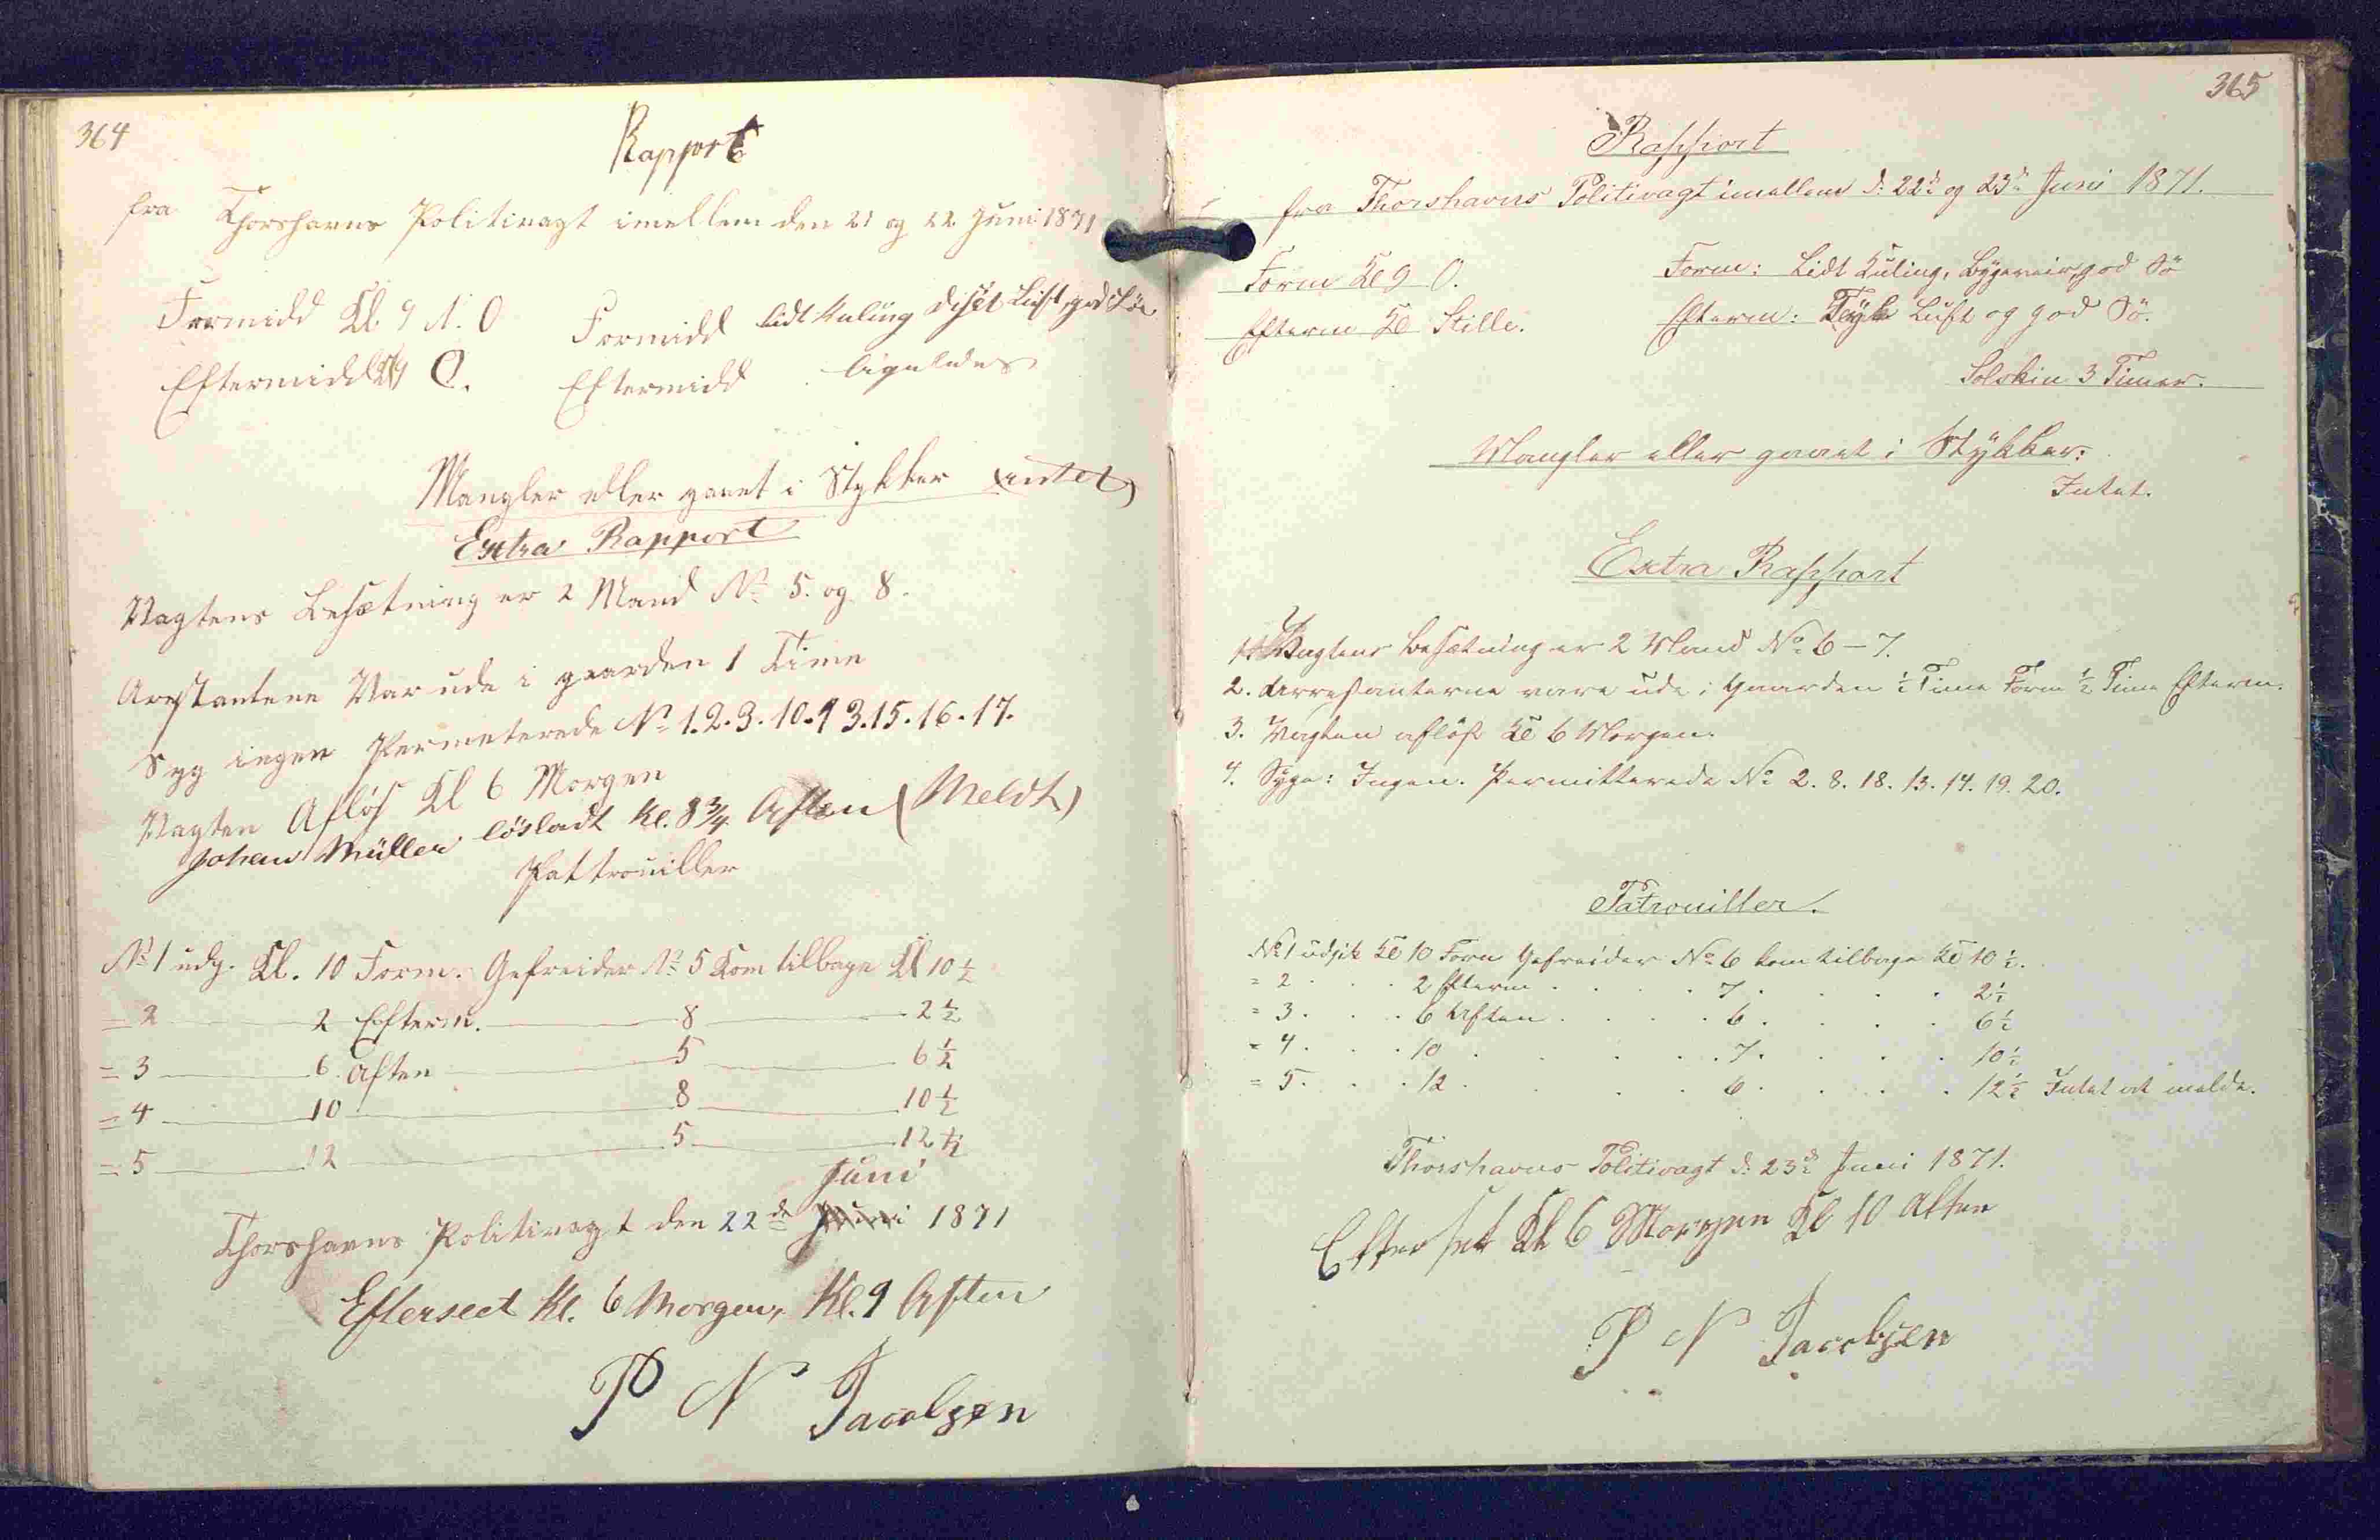 364
Rapport
fra Thorshavns Politivagt imellem den 21 og 22 Juni 1871
Formidd Kl. 9 N. O Formidd lidt Kuling diset Luft, god Söe
Eftermidd Kl 9 O. Eftermidd ligeledes
Mangler eller gaaet i Stykker intet
Extra Rapport
Vagtens Besætning er 2 Mand No 5. og 8.
Arestantene Var ude i gaarden 1 Time
Syg ingen Permeterede No 1.2.3.10.13.15.16.17.
Vagten Afløs Kl 6 Morgen
Johan Müller løsladt Kl. 8 3/4 Aften (Meldt)
Pattrouiller
No 1 udg. Kl. 10 Form. Gefreider No 5 Kom tilbage Kl 10 1/2
= 2 2 Efterm. 8 2 1/2
= 3 6 Aften 5 6 1/2
= 4 10 8 10 1/2
= 5 12 5 12 1/2
Juni
Thorshavns Politivagt den 22de Juni 1871
Efterseet Kl. 6 Morgen, Kl. 9 Aften
P N Jacobsen
365
Rapport
fra Thorshavns Politivagt imellem d: 22de og 23de Juni 1871.
Form Kl 9 O. Form: Lidt Kuling, Bygeveir, god Sö
Efterm Kl Stille. Efterm: Tyk Luft og god Sö.
Solskin 3 Timer.
Mangler eller gaaet i Stykker:
Intet.
Extra Rapport
1. Vagtens Besætning er 2 Mand No 6 – 7.
2. Arrestanterne vare ude i Gaarden 1/2 Time Form 1/2 Time Efterm.
3. Vagten aflöst Kl 6 Morgen.
4. Syge: Ingen. Permitterede No 2. 8. 18. 13. 14. 19. 20.
Patrouiller.
No 1 udgik Kl 10 Form Gefreider No 6 kom tilbage Kl 10 1/2.
= 2 . . . 2 Efterm . . . 7 . . . 2 1/2
= 3 . . . 6 Aften . . . 6 . . . 6 1/2
= 4 . . . 10 . . . 7 . . . 10 1/2
= 5 . . . 12 . . . 6 . . . 12 1/2 Intet at melde.
Thorshavns Politivagt d: 23de Juni 1871.
Efterset Kl 6 Morgen Kl 10 Aften
P N Jacobsen